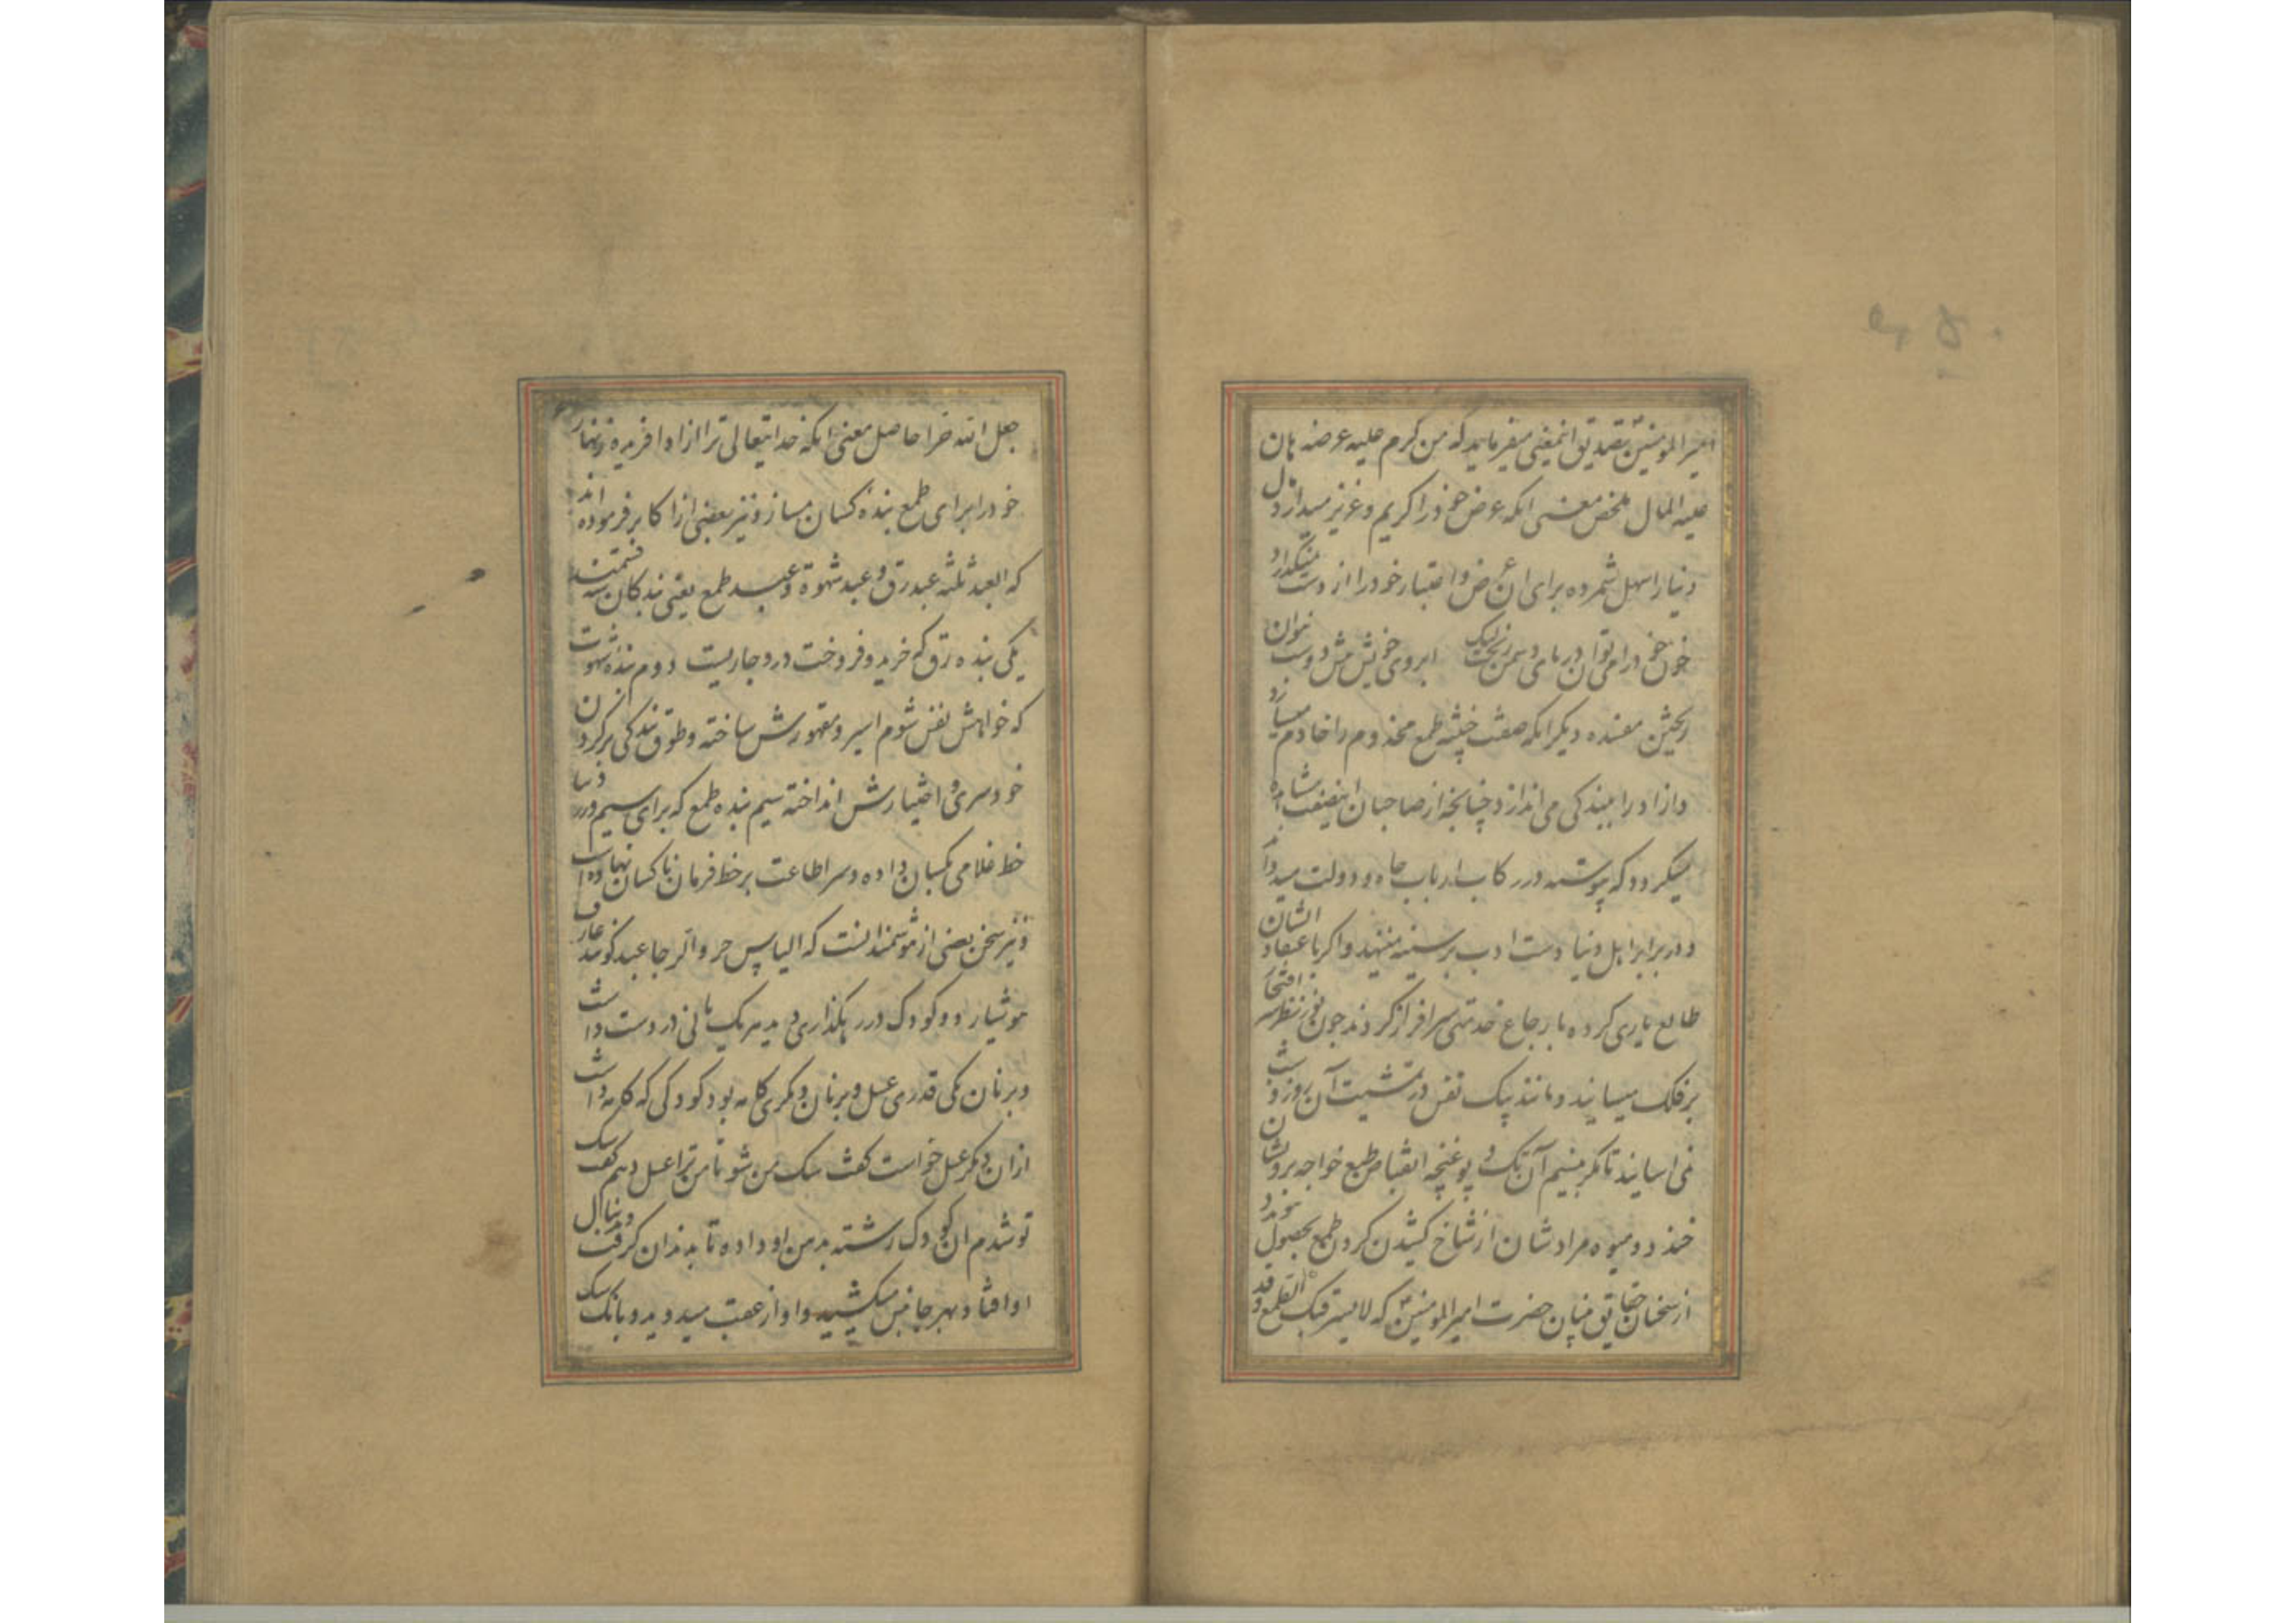 امیرالمومنین تصدیق اینمعنی میفرماید که من کرم علیه عرضه هان
علیه المال ملخص معنی انکه عرض خود را کریم و عزیز میداند مال
دنیا را سهل شمرده برای ان عرض و اعتبار خود را از دست نمیکذارد
خون خود را می توان در پای دشمن ریخت لیک ابروی خویش پیش دوست نتوان
ریختن مفسده دیکر انکه صفت خبیثه طمع مخدوم را خادم میسازد
و ازاد را ببندکی می اندازد چنانچه از صاحبان اینصفت مشاهده
میکردد که پیوسته در رکاب ارباب جاه و دولت میدوند
و در برابر اهل دنیا دست ادب بر سینه مینهند و اکر باعتقاد ایشان
طالع یاری کرده بارجاع خدمتی سرافراز کردند چون نور نظر سر افتخار
بر فلک میسایند و مانند پیک نفس در تمشیت آن روز و شب
نمی اسایند تا مکر بنسیم آن تک و پو غنچه انقباض طبع خواجه بر رویشان
خندد و میوه مرادشان از شاخ کشیدن کردن طمع بحصول پیوندد
از سخنان حقایق بنیان حضرت امیرالمومنین که لا یسترقنک الطمع و قد
جعل الله حرا حاصل معنی انکه خدایتعالی ترا ازاد افریده زنهار
خود را برای طمع بنده کسان مساز و نیز بعضی از اکابر فرموده اند
که العبد ثلثه عبد رق و عبد شهوة و عبد طمع یعنی بندکان سه قسمند
یکی بنده رق که خرید و فروخت در و جاریست دوم بنده شهوت
که خواهش نفس شوم اسیر و مقهورش ساخته و طوق بندکی بر کردن
خودسری و اختیارش انداخته سیم بنده طمع که برای سیم و زر دنیا
خط غلامی بکسان داده و سر اطاعت بر خط فرمان ناکسان نهاده است
و نیز سخن بعضی از هوشمندانست که الیاس حر و الرجا عبد کویند عارف
هوشیار دو کودک در رهکذاری دید هر یک نانی در دست داشت
و بر نان یکی قدری عسل و بر نان دیکری کامه بود کودکی که کامه داشت
ازان دیکر عسل خواست کفت سک من شو تا من ترا عسل دهم کفت سک
تو شدم ان کودک رشته بدهن او داده تا بدندان کرفت و دنبال
او افتاد بهر جانبش میکشید و او از عقب میدوید و بانک سک